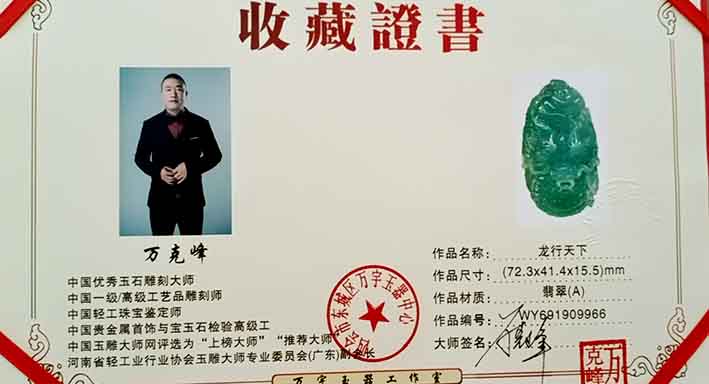 收藏證書
万克峰
中国优秀玉石雕刻大师
中国一级/高级工艺品雕刻师
中国轻工珠宝鉴定师
中国贵金属首饰与宝玉石检验高级工
中国玉雕大师网评选为“上榜大师”“推荐大师”
河南省轻工业行业协会玉雕大师专业委员会(广东)副会长
四会市东城区万字玉器中心
作品名称: 龙行天下
作品尺寸: (72.3x41.4x15.5)mm
作品材质: 翡翠(A)
作品编号: WY691909966
大师签名:
万克峰
万字玉器工作室